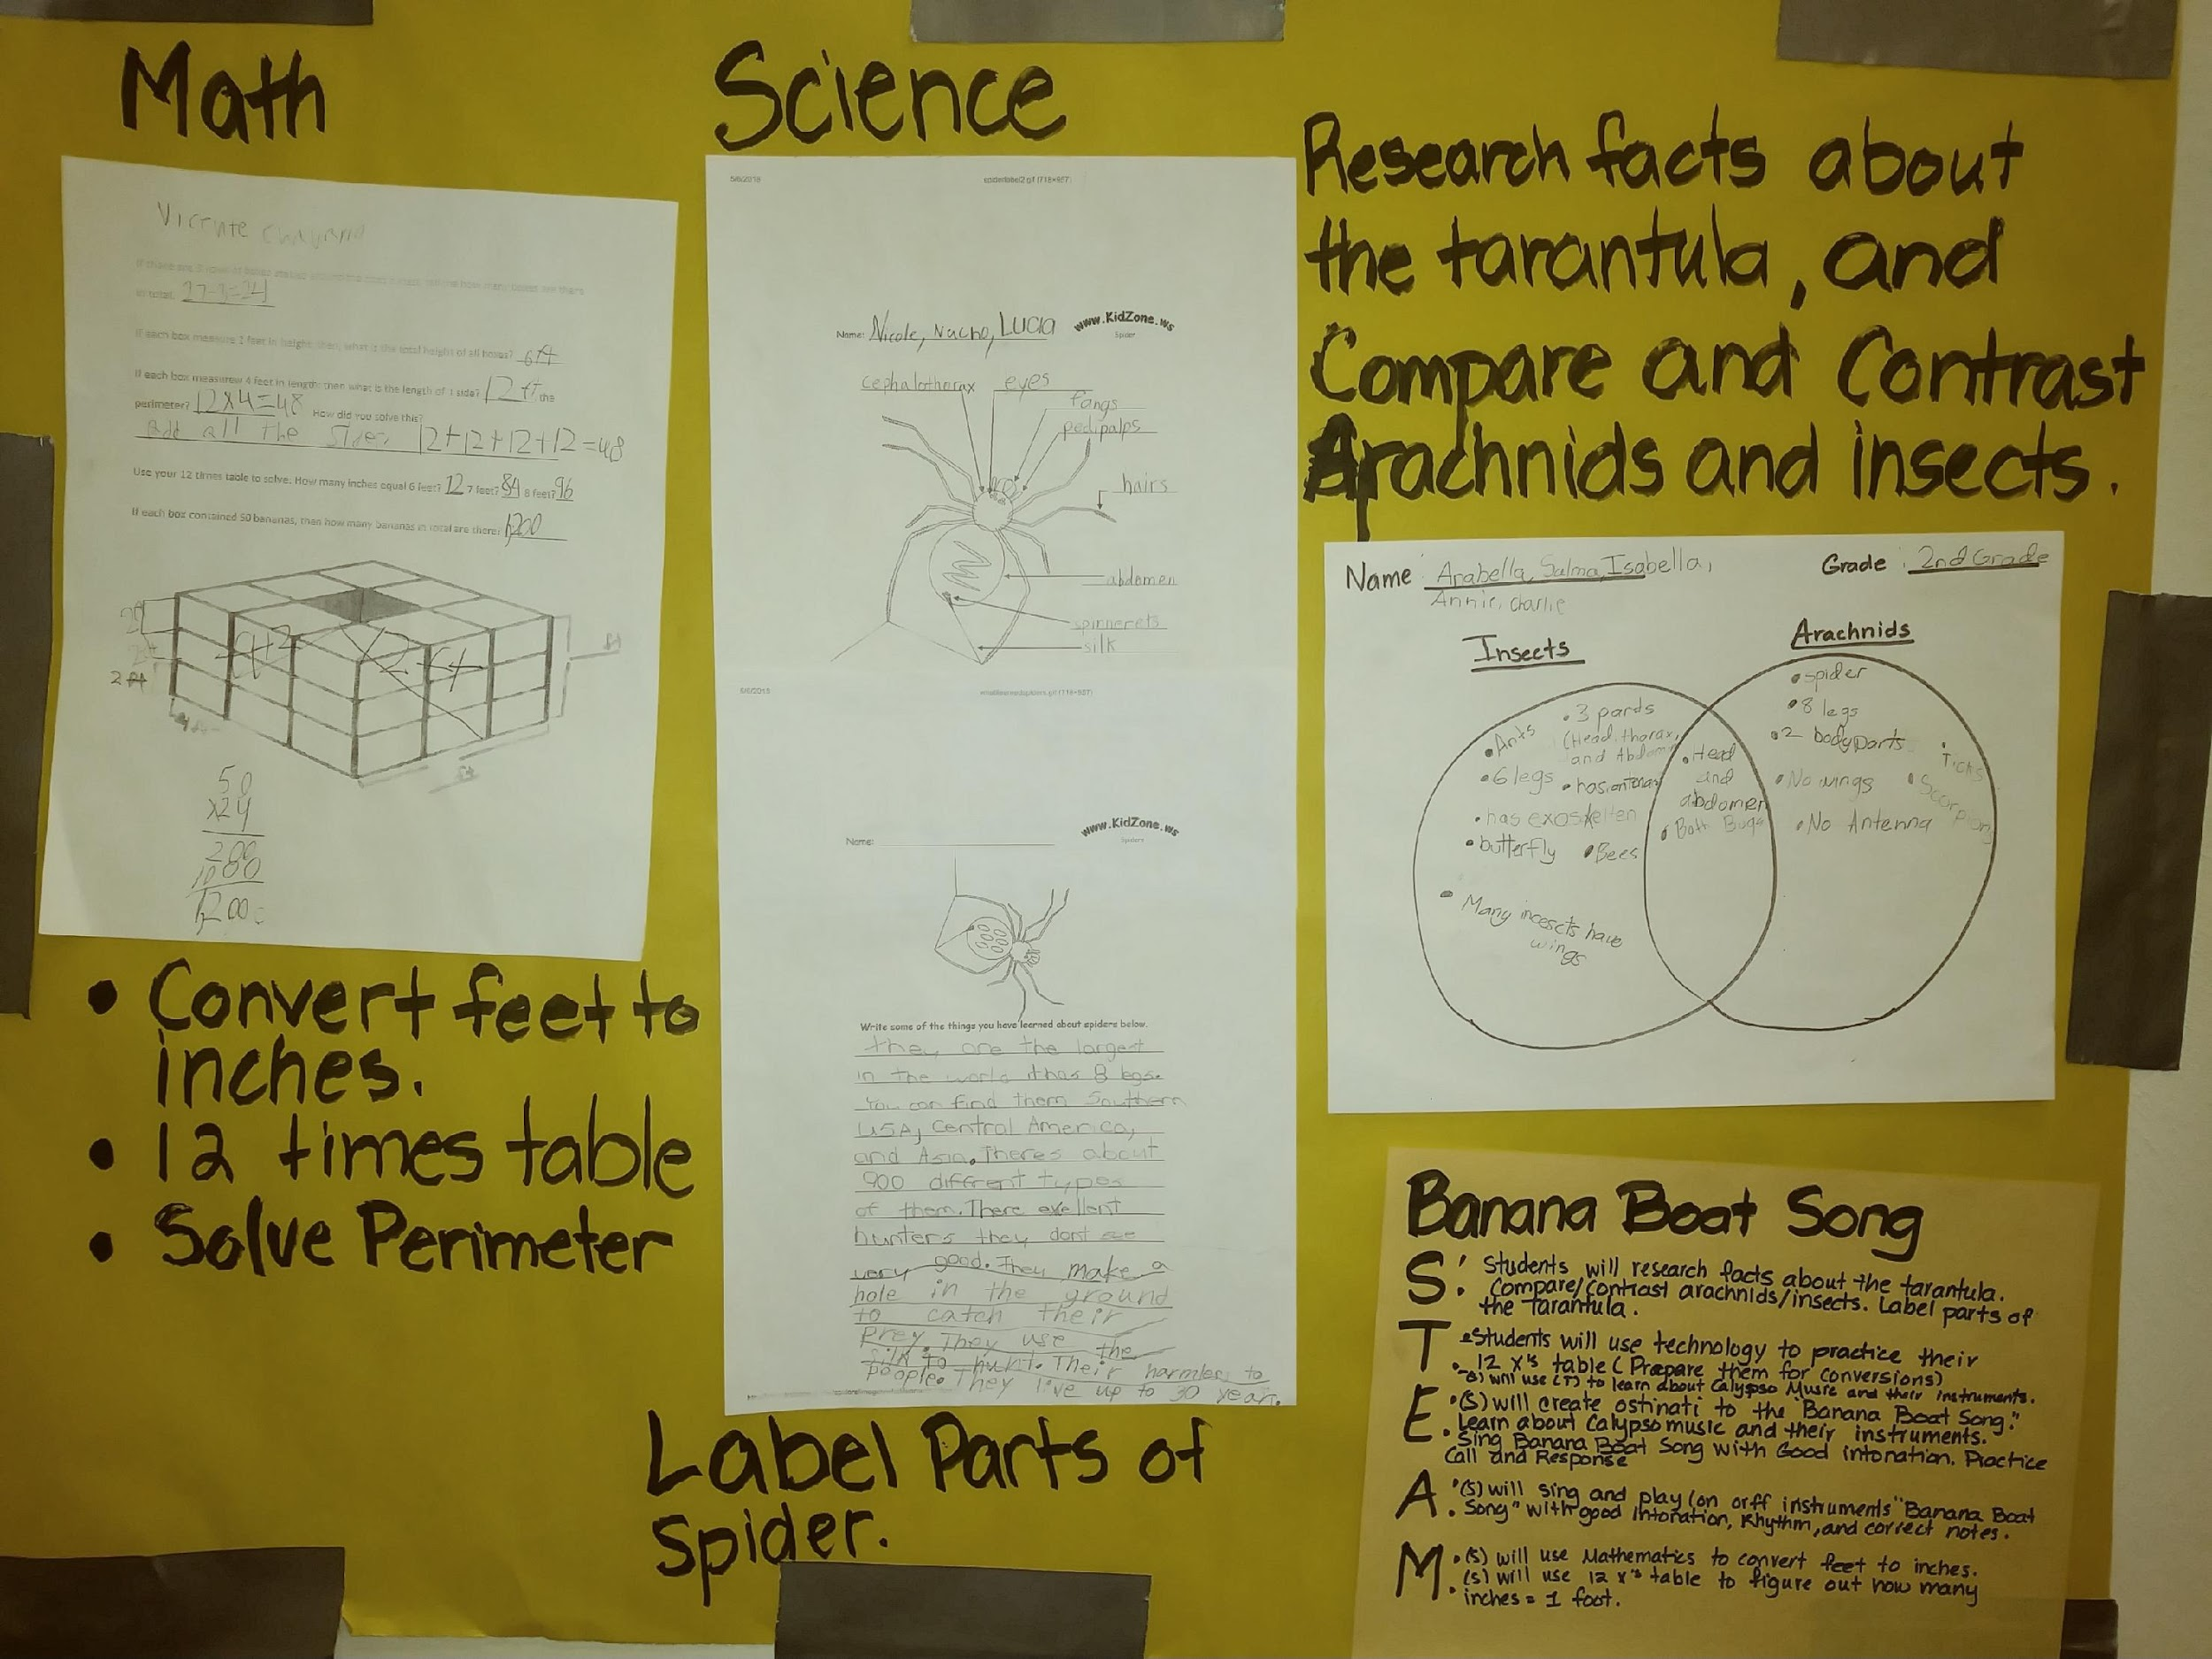 Math
Vicente
in total. 27-3=24
If each box measure 2 feet in height, then, what is the total height of all boxes? 6ft
If each box measures 4 feet in length, then what is the length of 1 side? 12 ft the
perimeter? 12x4=48 How did you solve this?
Add all the sides 12+12+12+12=48
Use your 12 times table to solve. How many inches equal 6 feet? 12 7 feet? 84 8 feet? 96
If each box contained 50 bananas, then how many bananas in total are there? 1,200
2 ft
50
x24
200
1000
1,200
• Convert feet to
inches.
• 12 times table
• Solve Perimeter
Science
5/6/2016 spiderlabel2.gif (718×957)
Name: Nicole, Nacho, Lucia www.KidZone.ws
Spider
cephalothorax eyes
fangs
pedipalps
hairs
abdomen
spinnerets
silk
www.KidZone.ws
Name:
Spiders
Write some of the things you have learned about spiders below.
they are the largest
in the world ithas 8 legs.
You can find them Southern
USA, Central America,
and Asia. Theres about
900 diffrent types
of them. There exellent
hunters they dont see
very good. They make a
hole in the ground
to catch their
Prey. They use the
silk to hunt. Their harmless to
people. They live up to 30 year.
Label Parts of
Spider.
Research facts about
the tarantula, and
Compare and Contrast
Arachnids and insects.
Name: Arabella, Salma, Isabella, Grade: 2nd Grade
Annie, Charlie
Insects
Arachnids
• Ants
• 3 pards
(Head, thorax,
and Abdomen
• 6 legs
• has antenas
• has exoskelten
• butterfly • Bees
• Many incescts have
wings
• Head
and
abdomen
• Both Bugs
• spider
• 8 legs
• 2 bodyparts
• Ticks
• No wings
• Scorpions
• No Antenna
Banana Boat Song
S: Students will research facts about the tarantula.
Compare/contrast arachnids/insects. Label parts of
the tarantula.
T • Students will use technology to practice their
12 x's table (Prepare them for conversions)
(S) will use (T) to learn about Calypso Music and their instruments.
E • (S) will create ostinati to the "Banana Boat Song."
Learn about Calypso music and their instruments.
• Sing Banana Boat Song with Good intonation. Practice
Call and Response
A • (S) will sing and play (on orff instruments "Banana Boat
Song" with good Intonation, Rhythm, and correct notes.
M • (S) will use Mathematics to convert feet to inches.
• (S) will use 12 x's table to figure out how many
inches = 1 foot.